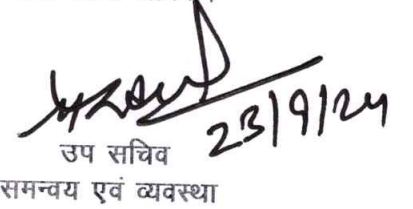 23/9/24
उप सचिव
समन्वय एवं व्यवस्था